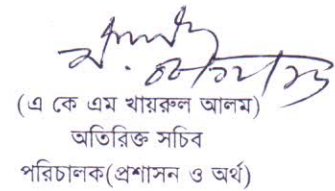 (এ কে এম খায়রুল আলম)
অতিরিক্ত সচিব
পরিচালক(প্রশাসন ও অর্থ)